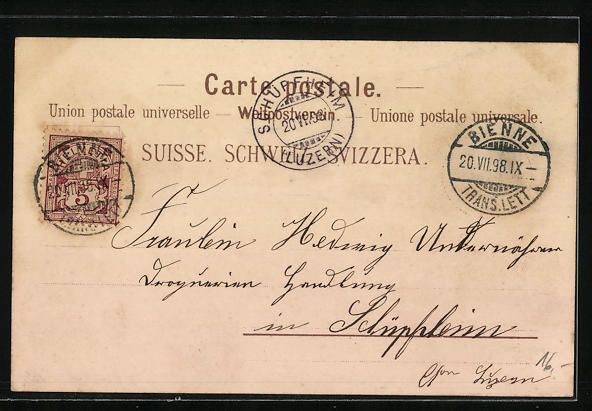 Carte postale.
Union postale universelle — Weltpostverein. — Unione postale universale.
SUISSE. SCHWEIZ. SVIZZERA.
SCHÜPFHEIM
20 VII 98
(LUZERN)
BIENNE
20.VII.98.IX—
TRANS.LETT
BIENNE
5
Fräulein Hedwig Unternährer
Droguerien Handlung
in Schüpfheim
Cton Luzern
16.-